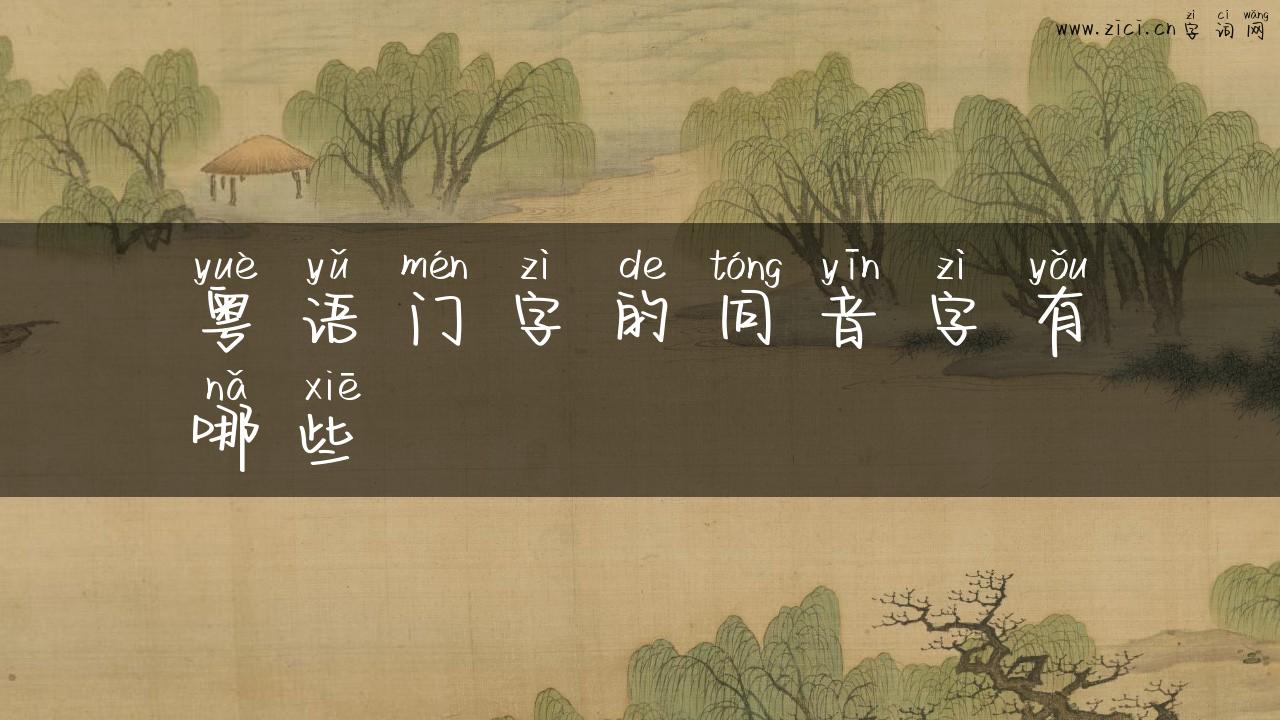 zì cí wǎng
www.zici.cn 字 词 网
yuè yǔ mén zì de tóng yīn zì yǒu
粤 语 门 字 的 同 音 字 有
nǎ xiē
哪 些